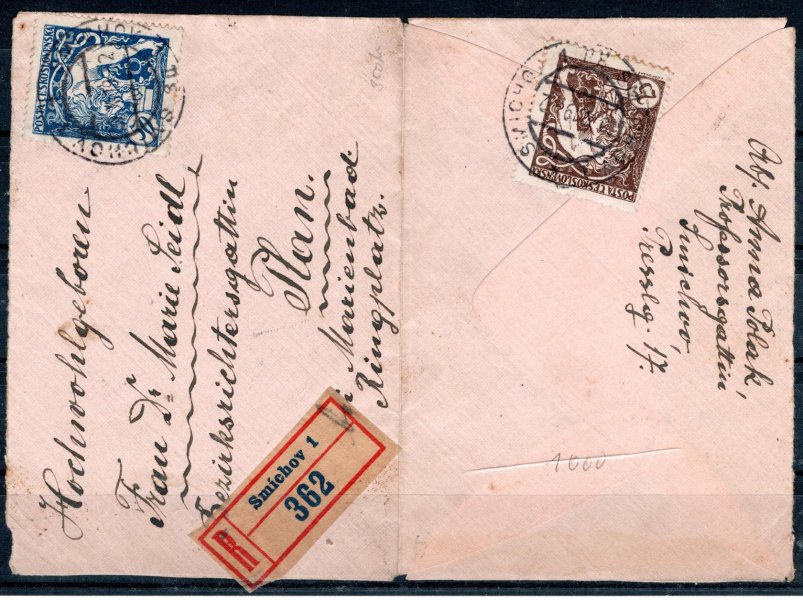 POŠTA ČESKOSLOVENSKÁ
50
Hochwohlgeboren
Frau Dr Marie Seidl
Bezirksrichtersgattin
Plan.
bei Marienbad
Ringplatz.
R
Smíchov 1
362
SMÍCHOV
POŠTA ČESKOSLOVENSKÁ
75
Abs. Anna Polak,
Professorsgattin
Smichov
Presslg. 17.
1000